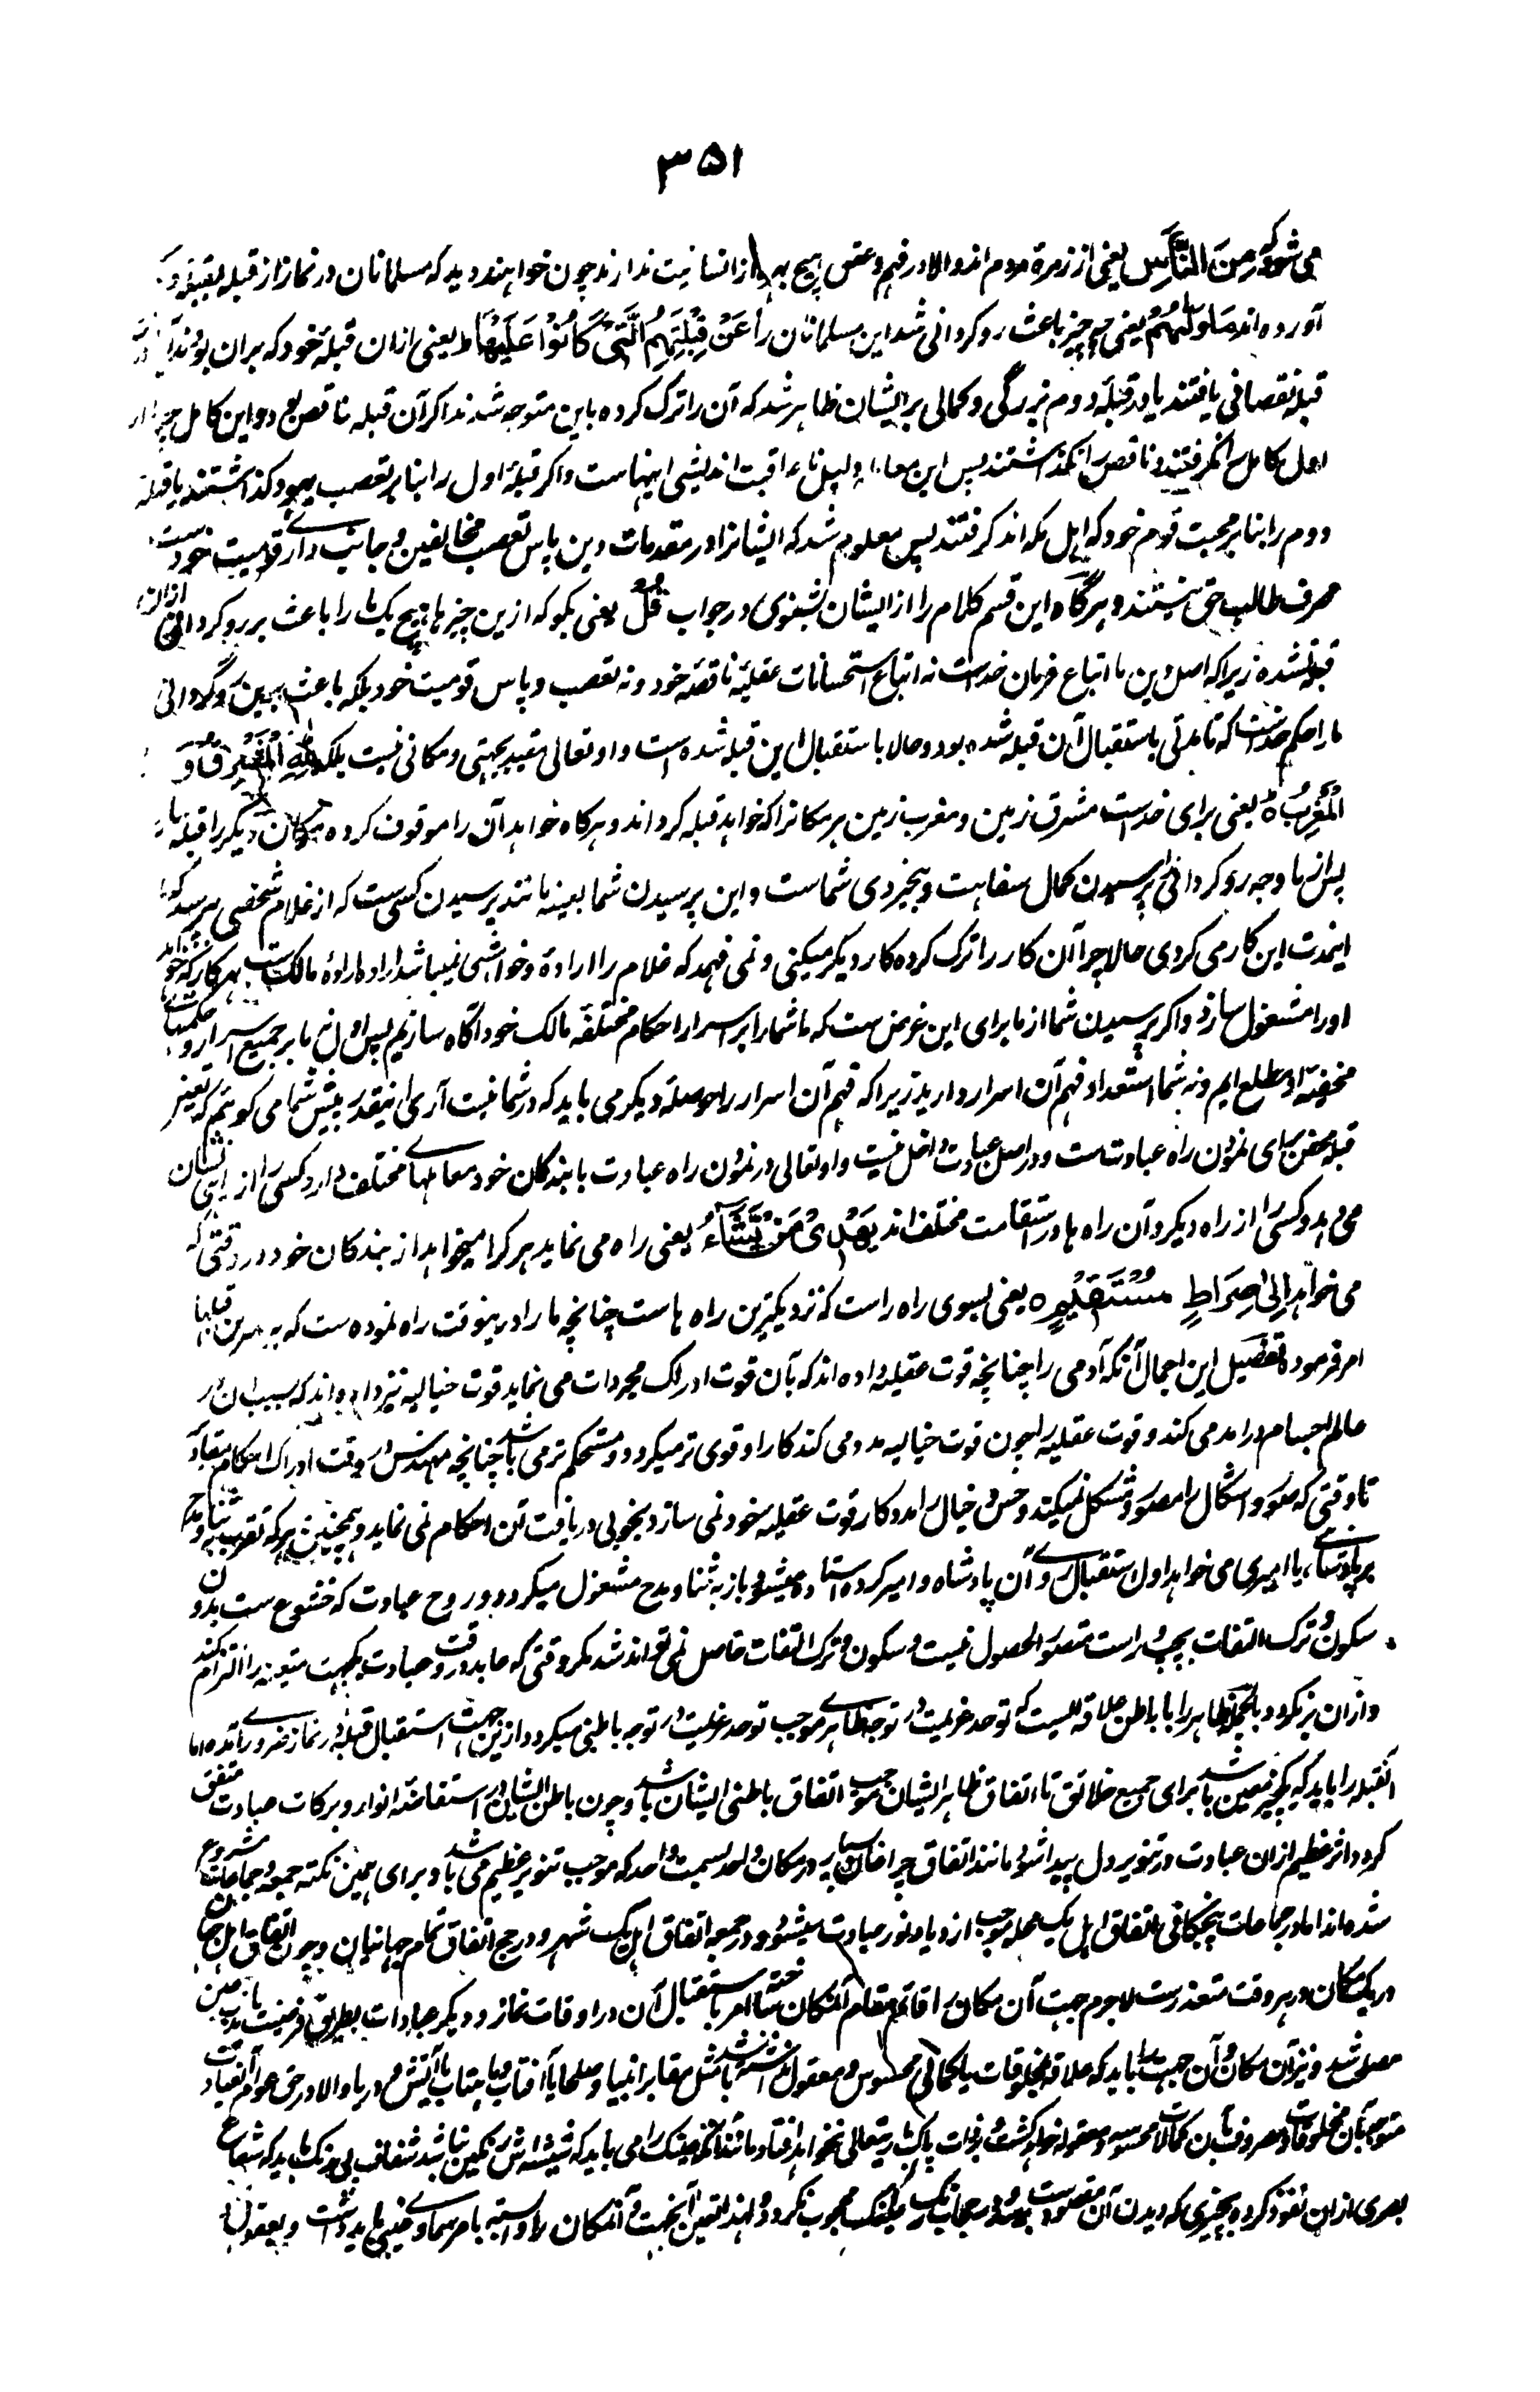 ۳۵۱
می شوند مِنَ النَّاسِ یعنی از زمرهٔ مردم اند والا در فهم و عقل هیچ بهره از انسانیت ندارند چون خواهند دید که مسلمانان در نماز از قبله بقبله رو
آورده اند مَا وَلّٰهُمْ یعنی چه چیز باعث روگردانی شد این مسلمانان را عَنْ قِبْلَتِهِمُ الَّتِیْ کَانُوْا عَلَیْهَا ط یعنی ازان قبلهٔ خود که بران بودند آیا در
قبله نقصانی یافتند یا در قبلهٔ دوم بزرگی و کمالی بر ایشان ظاهر شد که آن را ترک کرده باین متوجه شدند اگر آن قبله ناقص بود و این کامل چرا از
اول کامل را نگرفتند و ناقص را نگذاشتند پس این معامله دلیل ناعاقبت اندیشی اینهاست و اگر قبلهٔ اول را بنابر تعصب یهود گذاشتند یا قبلهٔ
دوم را بنابر محبت قوم خود که اهل مکه اند گرفتند پس معلوم شد که ایشانرا در مقدمات دین پاس تعصب مخالفین و جانب داری قومیت خود ست
صرف طالب حق نیستند و هرگاه این قسم کلام را از ایشان بشنوی در جواب قُلْ یعنی بگو که ازین چیزها هیچ یک ما را باعث بر روگردانی ازان
قبله نشده زیرا که اصل دین ما اتباع فرمان خداست نه اتباع استحسانات عقلیهٔ ناقصهٔ خود و نه تعصب و پاس قومیت خود بلکه باعث برین روگردانی
ما را حکم خداست که تا مدتی باستقبال آن قبله شده بود و حالا باستقبال این قبله شده است و او تعالی مقید بجهتی و مکانی نیست بلکه لِلّٰهِ الْمَشْرِقُ وَ
الْمَغْرِبُ ط یعنی برای خداست مشرق زمین و مغرب زمین هر مکانرا که خواهد قبله گرداند و هرگاه خواهد آن را موقوف کرده مکان دیگر را قبله
پس از ما وجه روگردانی پرسیدن کمال سفاهت و بیخردی شماست و این پرسیدن شما بعینه مانند پرسیدن کسی ست که از غلام شخصی پرسد که تا
اینمدت این کار می کردی حالا چرا آن کار را ترک کرده کار دیگر میکنی و نمی فهمد که غلام را ارادهٔ و خواهشی نمیباشد اراده ارادهٔ مالک ست بهر کار که خواهد
او را مشغول سازد و اگر پرسیدن شما از ما برای این غرض ست که ما شما را بر اسرار احکام مختلفهٔ مالک خود آگاه سازیم پس اول نه ما بر جمیع اسرار و حکمتهای
مخفیهٔ او مطلع ایم و نه شما استعداد فهم آن اسرار دارید زیرا که فهم آن اسرار را حوصلهٔ دیگر می باید که در شما نیست آری اینقدر پیش شما می گوئیم که تعین
قبله محض برای نمودن راه عبادتست و در اصل عبادت داخل نیست و او تعالی در نمودن راه عبادت با بندگان خود معاملهای مختلف دارد کسی را از ایشان
می دهد و کسی را از راه دیگر و آن راه ها در استقامت مختلف اند یَهْدِیْ مَنْ یَّشَآءُ یعنی راه می نماید هر کرا میخواهد از بندگان خود در وقتی که
می خواهد اِلٰی صِرَاطٍ مُّسْتَقِیْمٍ ٥ یعنی بسوی راه راست که نزدیکترین راه هاست چنانچه ما را درینوقت راه نموده ست که به بهترین قبلها
امر فرموده تفصیل این اجمال آنکه آدمی را چنانچه قوت عقلیه داده اند که بآن قوت ادراک مجردات می نماید قوت خیالیه نیز داده اند که بسبب آن در
عالم اجسام درآمد می کند و قوت عقلیه را چون قوت خیالیه مدد می کند کار او قوی تر میگردد و مستحکم تر می باشد چنانچه مهندس در وقت ادراک احکام مقادیر
تا وقتی که صور و اشکال را مصور و مشکل نمیکند و حس و خیال را مددگار قوت عقلیه خود نمی سازد بخوبی دریافت آن احکام نمی نماید و همچنین هر که تقرب
پادشاهی یا امیری می خواهد اول استقبال روی آن پادشاه و امیر کرده استاده میشود باز به ثنا و مدح مشغول میگردد و روح عبادت که خشوع ست بدون
سکون و ترک التفات بچپ و راست متصور الحصول نیست و سکون و ترک التفات حاصل نمی تواند شد مگر وقتی که عابد در وقت عبادت یکجهت متعینه را التزام کند
و ازان برنگردد بالجمله ظاهر را با باطن علاقه ایست که توحد عزیمت در توجه ظاهری موجب توحد عزیمت در توجه باطنی میگردد ازین جهت استقبال قبله در نماز ضروری آمده اما
آنقبله را باید که یک چیز معین باشد برای جمیع خلائق تا اتفاق ظاهر ایشان موجب اتفاق باطنی ایشان باشد و چون باطن ایشان در استفاضهٔ انوار و برکات عبادت متفق
گردد اثر عظیم ازان عبادت در تنویر دل پیدا شود مانند اتفاق چراغان بسیار در مکان واحد بسمت واحد که موجب تنویر عظیم می باشد و برای همین نکته جمعه و جماعات مشروع
شده اند اما در جماعات پنجگانی اتفاق اهل یک محله موجب ازدیاد نور عبادت میشود و در جمعه اتفاق اهل یک شهر و در حج اتفاق تمام جهانیان و چون اتفاق اهل جهان
در یک مکان در هر وقت متعذرست لاجرم جهت آن مکان را قائم مقام آن مکان ساخته امر باستقبال آن در اوقات نماز و دیگر عبادات بطریق فرضیت یا
شد و نیز آن مکان و آن جهت را باید که علاقه بمخلوقات یا کمالی محسوس و معقول نداشته باشد مثل مقابر انبیا و صلحا یا آفتاب و ماهتاب یا آتش و دریا والا در حق عوام
متوجه بآن مخلوقات و مصروف بآن کمالات محسوسه و معقوله خواهد گشت و بذات پاک باریتعالی نخواهد افتاد مانند آنکه عینک را می باید که شیشه اش رنگین نباشد شفاف بی رنگ باید که شعاع
بصری ازان نفوذ کرده بچیزی که دیدن آن مقصودست برسد و در حجاب رنگ عینک محجوب نگردد و لهذا تعین آن جهت و آن مکان را وابسته بامر سماوی غیبی باید داشت و بعقول